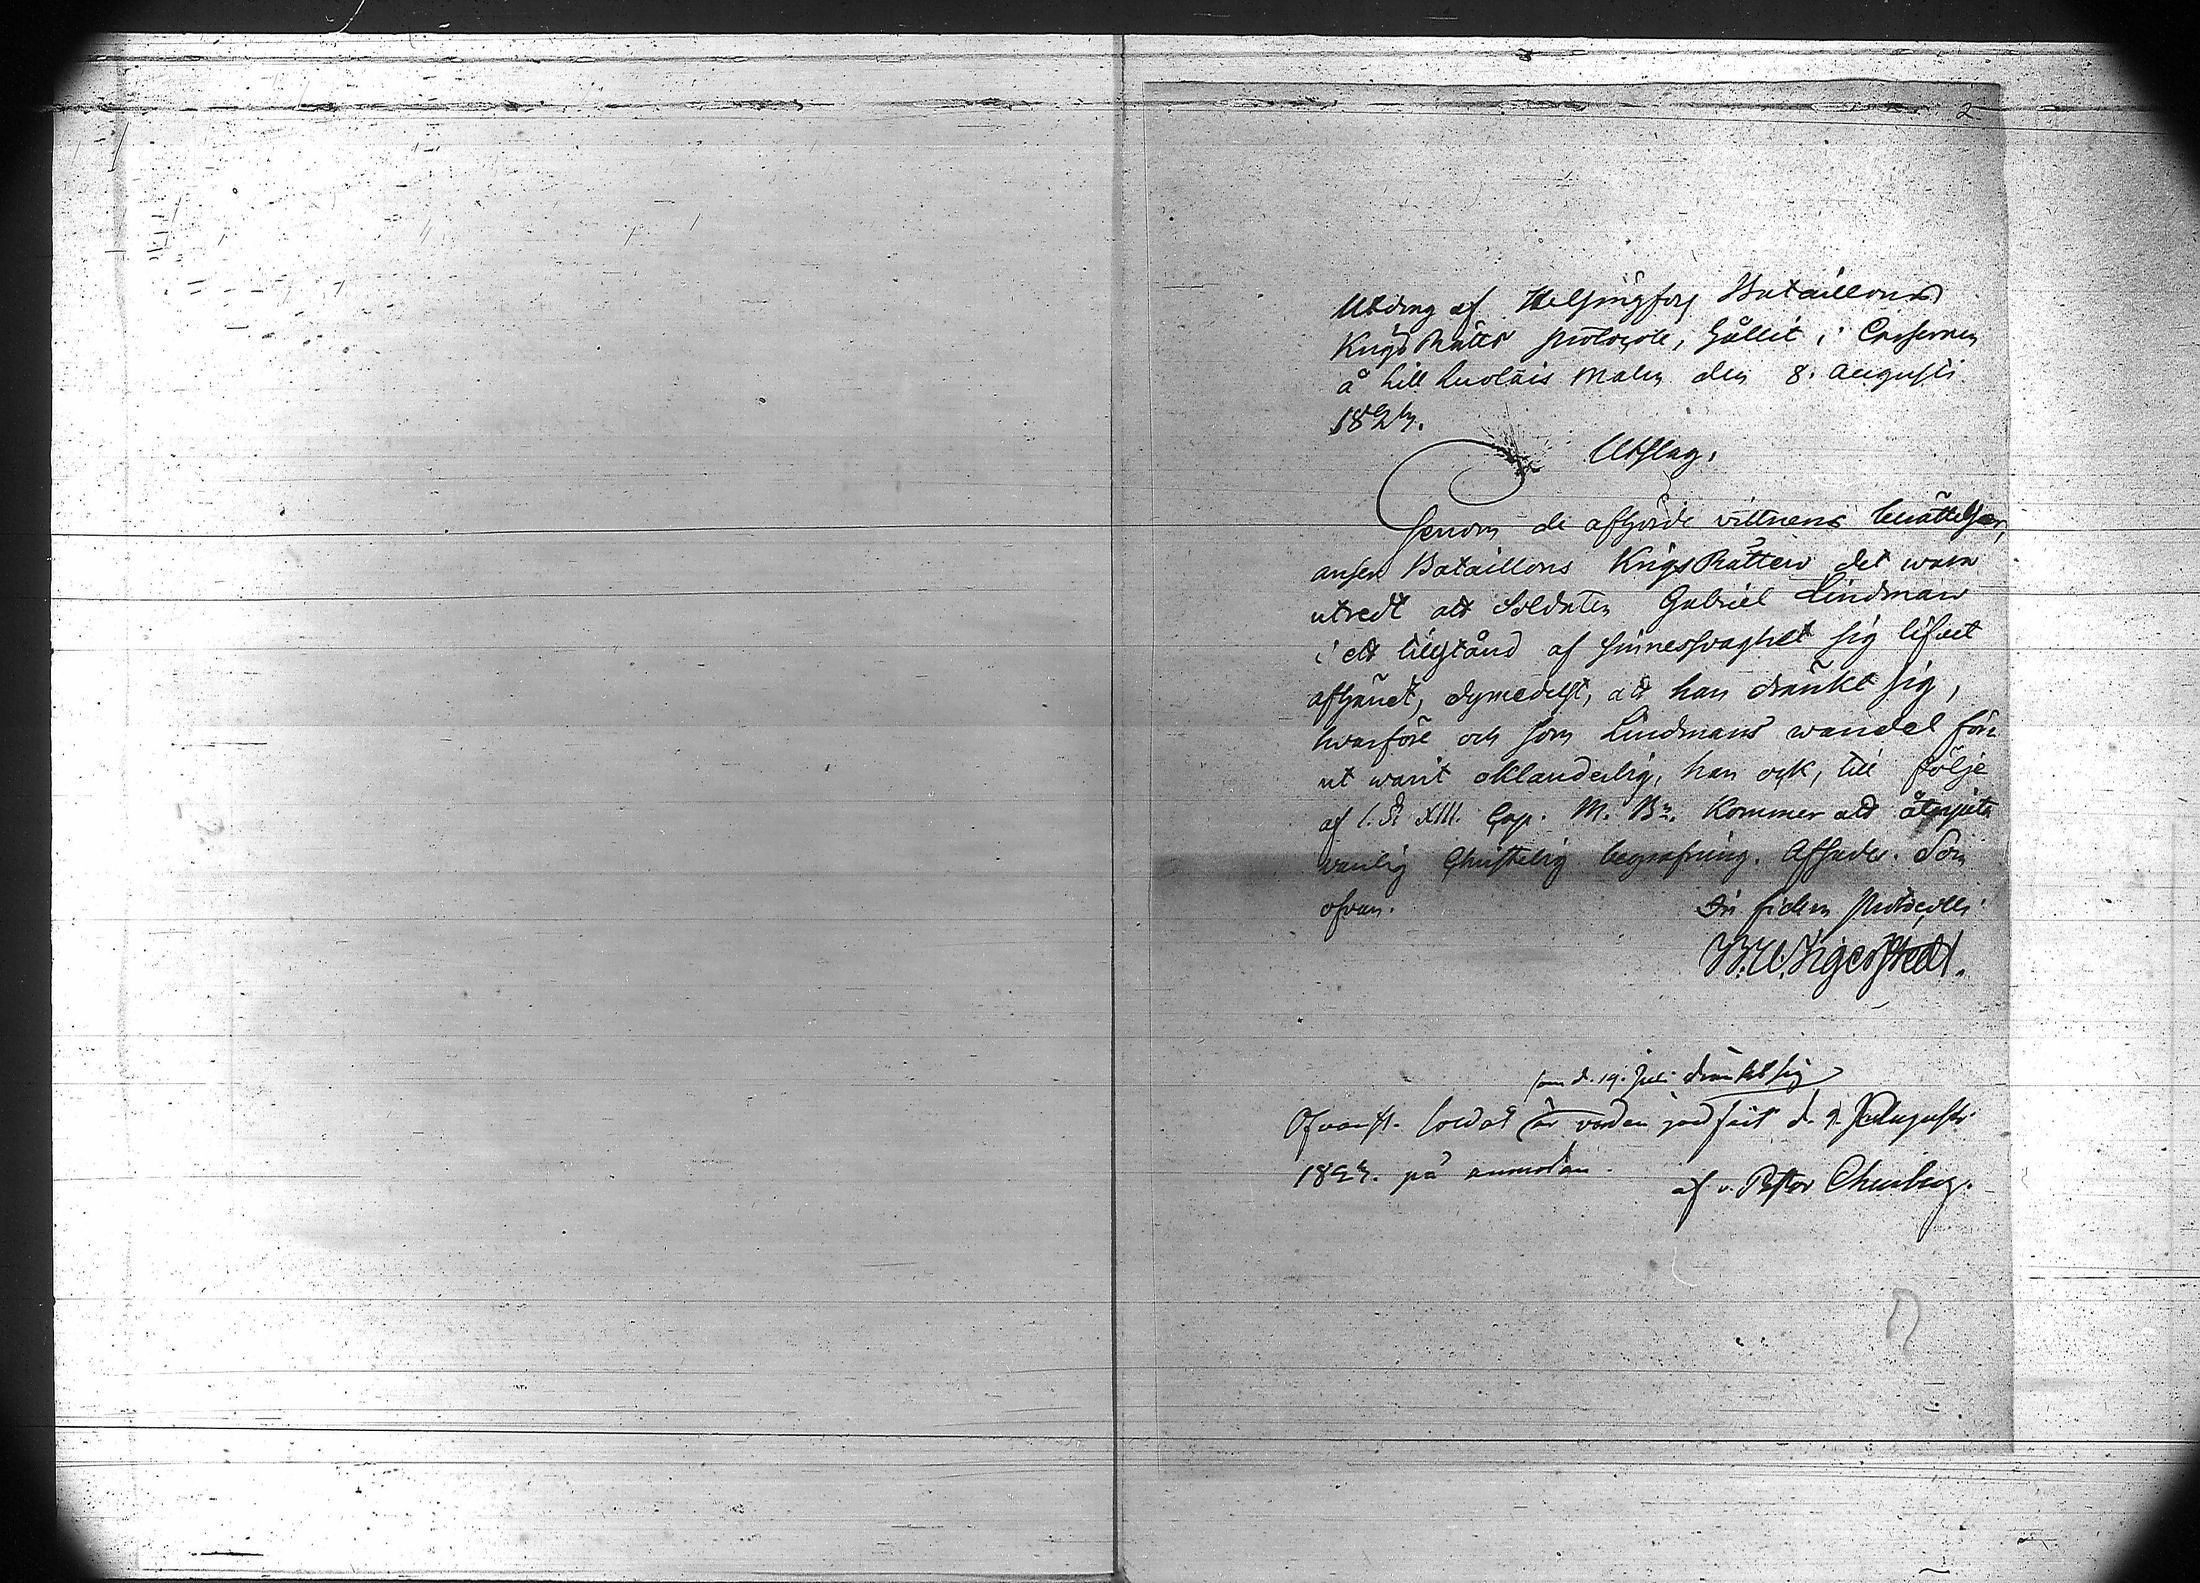 2
Utdrag af Helsingfors Bataillons
KrigsRätts Protocoll, hållit i Casernen
å Lill Luolais Malm den 8. Augusti
1824.
Utslag.
Genom de afhörde vittnens berättelser,
anser Bataillons KrigsRätten det wara
utredt att Soldaten Gabriel Lindman
i ett tillstånd af sinnessvaghet sig lifvet
afhändt, dymedelst, att han dränkt sig,
hvarföre och som Lindmans wandel för
ut warit oklanderlig, han ock, till följe
af 1. § XIII. Cap. M. B. Kommer att åtnjuta
vanlig Christelig begrafning. Afsades. Som
ofvan.
In fidem Protocolli
som d. 19. Juli dränkt sig
Ofvanst. Soldat är vorden jordfäst d. 9. Augusti
1824. på anmodan.
af v. Pastor